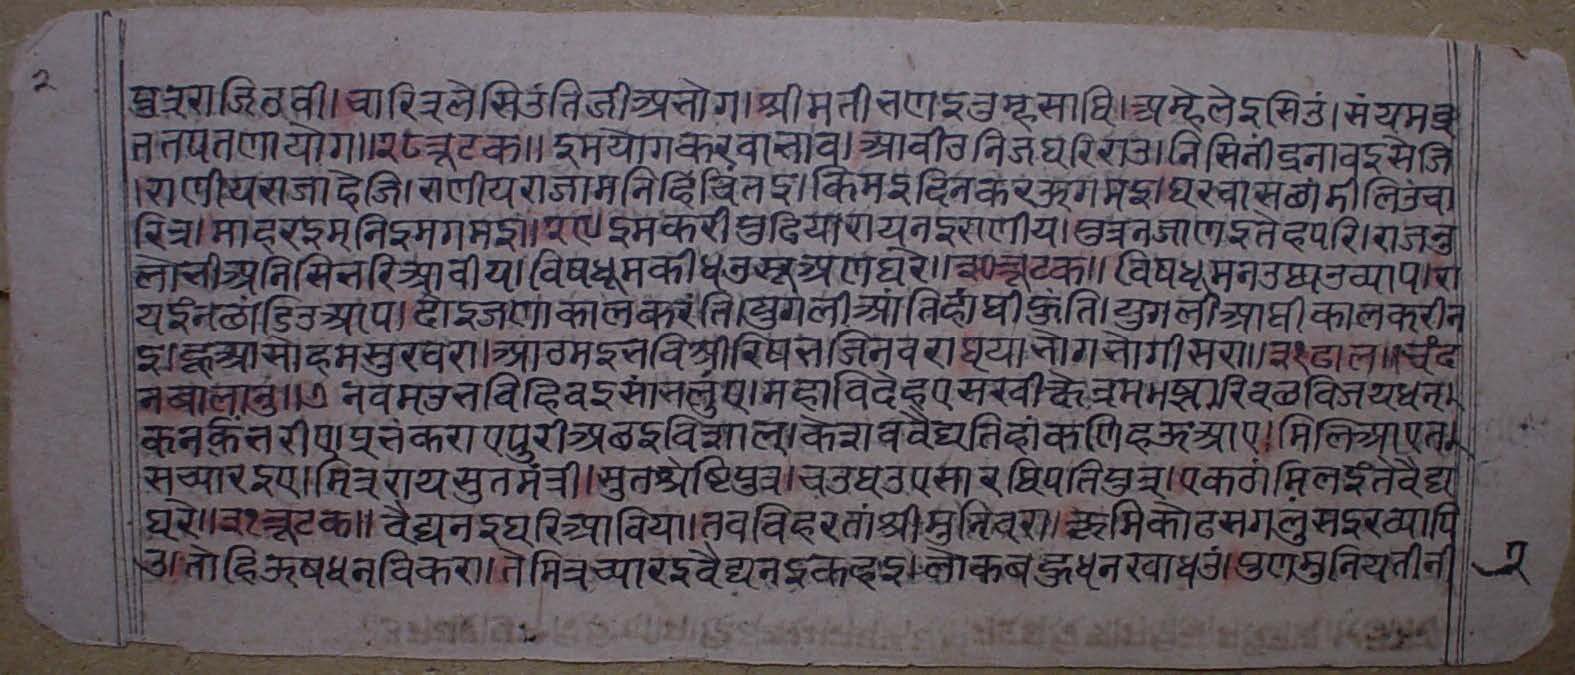 २
पुत्रराजिठवी। चारित्रलेसिउंतिजीअभोग। श्रीमतीभणइतुम्हसाथि। अम्हेलेइसिउं। संयमव्र
ततपतणायोग॥२८त्रूटक॥ इमयोगकरवाभाव। आवीउनिजघरिराउ। निसिनींद्रनावइसेजि
।राणीयराजादेजि। राणीयराजामनिहिंचिंतइ। किमइदिनकरऊगमइ। घरवासछांडीलिउंचा
रित्र। माहरइमनिइमगमइ॥२९ इमकरीपुढियारायनइराणीय। पुत्रनजाणइतेहपरि। राजनु
लोभीअनिसिभरिआवीय। विषधूमकीधउसूअणघरे॥३०त्रूटक॥ विषधूमनउथ्यउव्याप। रा
यइंनछांडिउआप। दोइजणाकालकरंति। युगलीआंतिहांथीहुंति। युगलीआथीकालकरीन
इ। हूआसोहमसुरवरा। आठमइभविश्रीरिषभजिनवराथया भोगभोगीसरा॥३१ढाल॥ चंद
नबालानु॥ए नवमउभविहिवइसांभलुए। महाविदेहएसरवीक्षेत्रममझारिवछविजयधन
कनकिंभरीए। प्रभंकराएपुरीअछइविशाल। केशववैद्यतिहांकणिहूआए। मिलिआएत
सच्यारइए। मित्ररायसुतमंत्री। सुतश्रेष्टिपुत्र। चउथउएसारथिपतिपुत्र। एकठांमिलइंतेवैद्य
घरे॥३२त्रूटक॥ वैद्यनइघरिआविया। तवविहरतांश्रीमुनिवरा। कृमिकोढसगलुसइरव्यापि
उ। तोहिऊषधनविकरा। तेमित्रच्यारइवैद्यनइकहइ। लोकबहुधनखाधउं। पुणमुनियतीनी
२